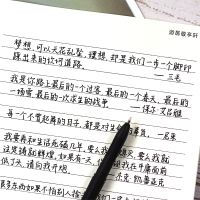 游居敬亭轩
梦想,可以天花乱坠,理想,都是我们一步一个脚印
踩出来的坎坷道路。
——三毛
我是你路上最后的一个过客,最后的一个春天,最后的
一场雪,最后的一次求生的战争
——保尔·艾吕雅
每一个不曾起舞的日子,都是对生命的辜负。——尼采
我要再和生活死磕几年。要么我
要么我就
注定铸就辉煌。如果有一天,你
我在平庸面前
低了头,请向我开炮。
杰克·凯鲁亚克
很多东西如果不怕别人捡